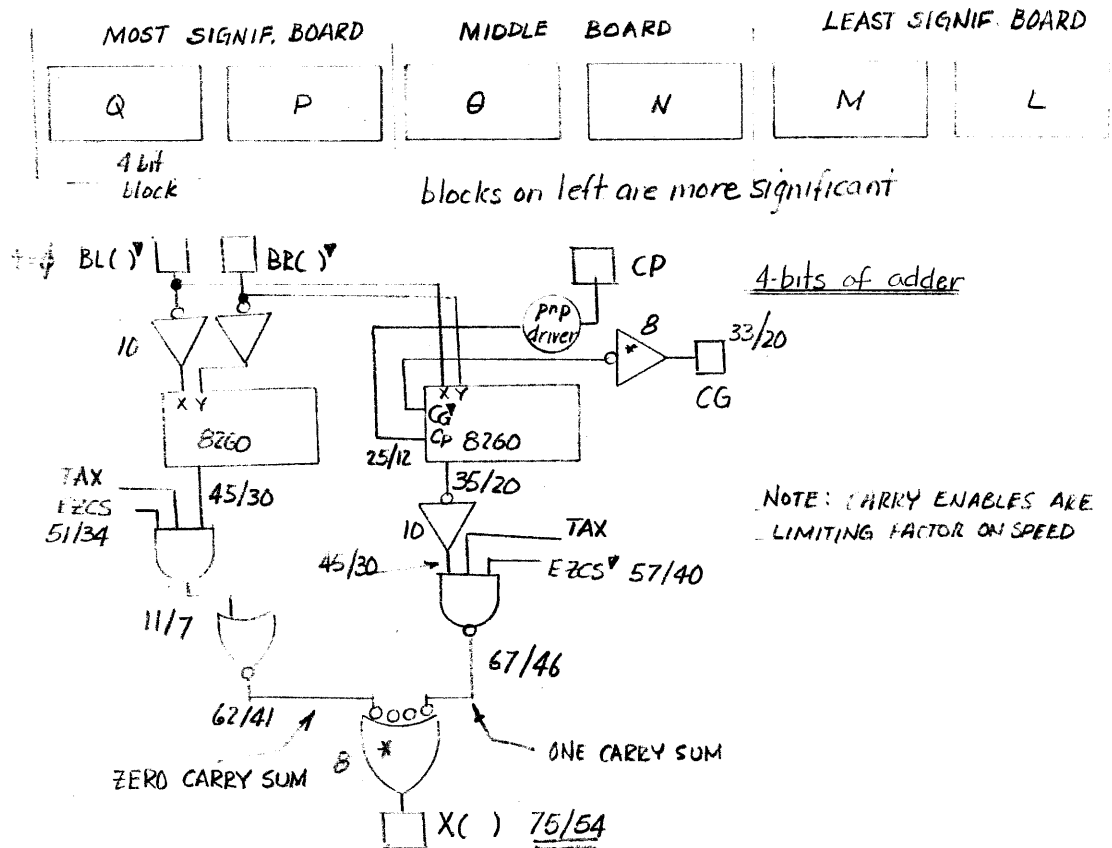 MOST SIGNIF. BOARD
MIDDLE BOARD
LEAST SIGNIF. BOARD
Q
P
θ
N
M
L
4 bit
block
blocks on left are more significant
BL( )▼
BR( )▼
CP
4-bits of adder
pnp
driver
8
*
33/20
CG
10
X Y
8260
X Y
CG▼
CP 8260
25/12
35/20
TAX
EZCS
51/34
45/30
NOTE: CARRY ENABLES ARE
LIMITING FACTOR ON SPEED
10
TAX
45/30
EZCS▼ 57/40
11/7
67/46
62/41
ZERO CARRY SUM
8
*
ONE CARRY SUM
X( ) 75/54